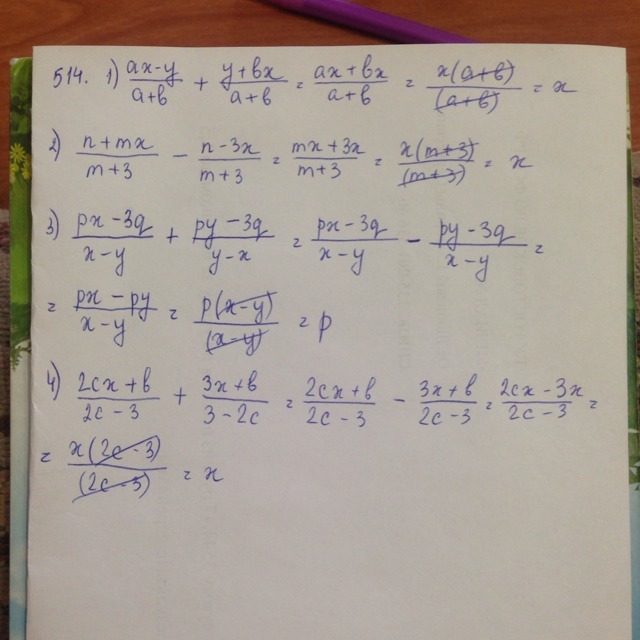 514. 1) (ax-y)/(a+b) + (y+bx)/(a+b) = (ax+bx)/(a+b) = x(a+b)/(a+b) = x
2) (n+mx)/(m+3) - (n-3x)/(m+3) = (mx+3x)/(m+3) = x(m+3)/(m+3) = x
3) (px-3q)/(x-y) + (py-3q)/(y-x) = (px-3q)/(x-y) - (py-3q)/(x-y) =
= (px-py)/(x-y) = p(x-y)/(x-y) = p
4) (2cx+b)/(2c-3) + (3x+b)/(3-2c) = (2cx+b)/(2c-3) - (3x+b)/(2c-3) = (2cx-3x)/(2c-3) =
= x(2c-3)/(2c-3) = x